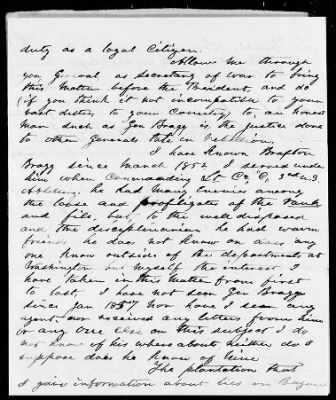 duty as a loyal Citizen.
Allow me through
you General, as secretary of war to bring
this Matter before the President, and do
(if you think it not incompatible to your
vast duties to your Country) to, an honest
man such as Gen Bragg is, the justice done
to other Generals late in rebellion,
I have known Braxton
Bragg since March 1852. I served under
him when Commanding Lt Co "C, 3rd U.S.
Artillery. he had many enemies among
the loose and profligates of the rank
and file, but, to the well disposed
and the disciplinarian he had warm
friends he does not know or does any
one know outside of the departments at
Washington but myself the interest I
have taken in this matter from first
to last, I have not seen Gen Bragg
since Jan nor have I seen any
agent. nor received any letters from him
or any one else on this subject I do
not know of his where abouts, neither do I
suppose does he know of mine
The plantation that
I gave information about lies on Bayou